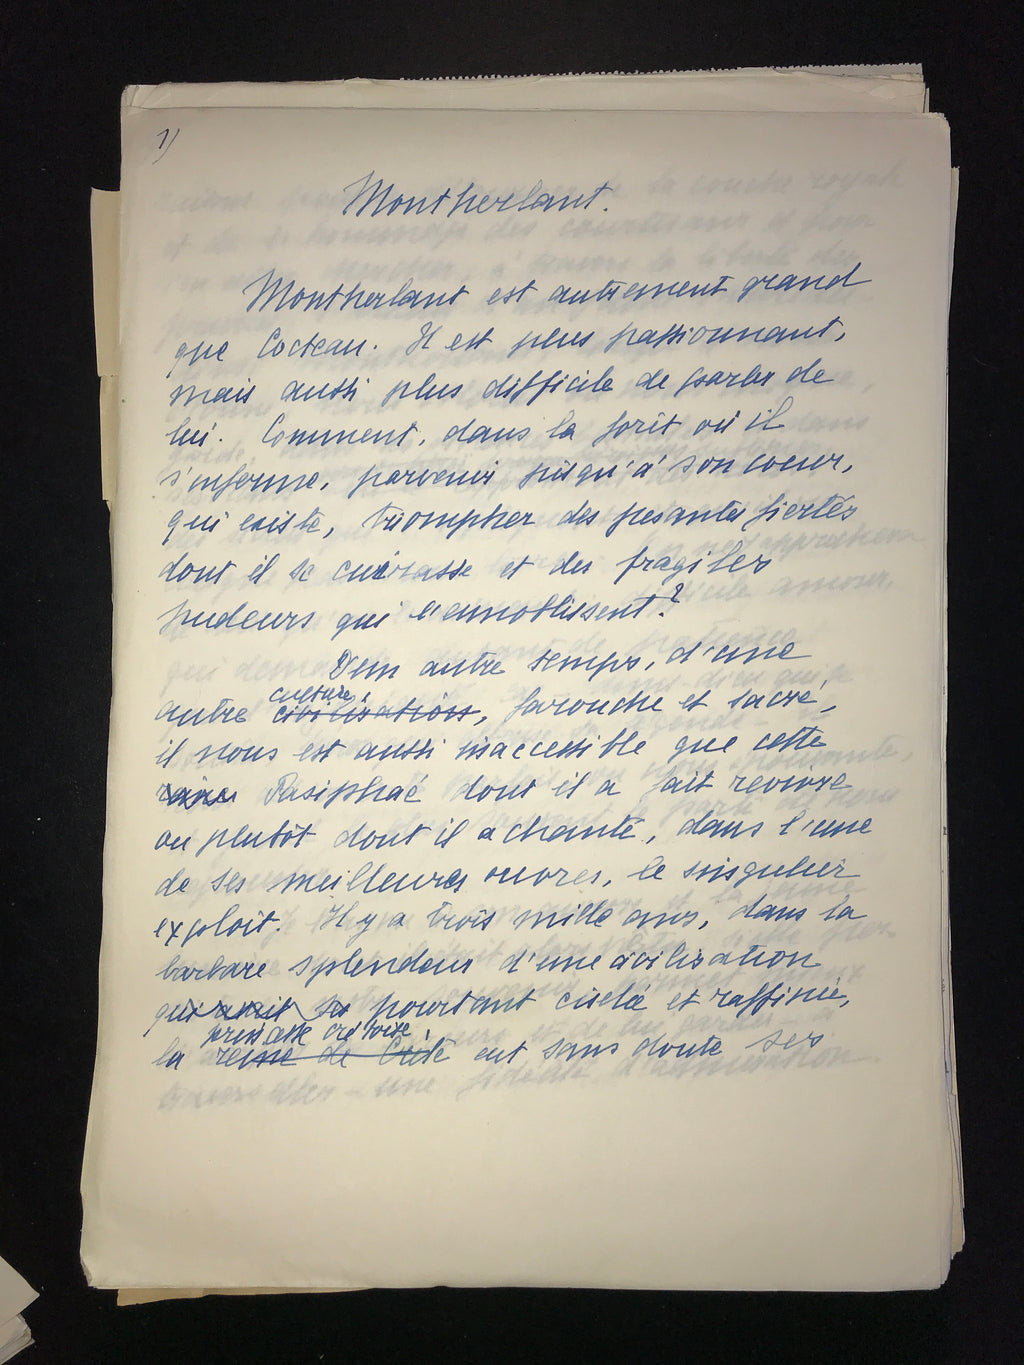 1)
Montherlant.
Montherlant est autrement grand
que Cocteau. Il est plus passionnant,
mais aussi plus difficile de parler de
lui. Comment, dans la forêt où il
s'enferme, parvenir jusqu'à son coeur,
qui existe, triompher des pesantes fiertés
dont il se cuirasse et des fragiles
pudeurs qui l'ennoblissent?
D'un autre temps, d'une
culture
autre civilisation, farouche et sacré,
il nous est aussi inaccessible que cette
reine Pasiphaé dont il a fait revivre
ou plutôt dont il a chanté, dans l'une
de ses meilleures œuvres, le singulier
exploit. Il y a trois mille ans, dans la
barbare splendeur d'une civilisation
qui avait su pourtant ciselée et raffinée,
princesse crétoise
la reine de Crète eut sans doute ses